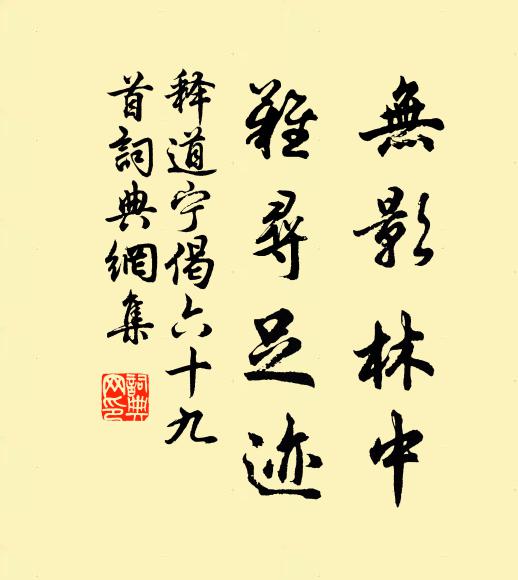 無影林中
難尋足迹
释道宁偈六十九
首詞典網集
詞典
网印